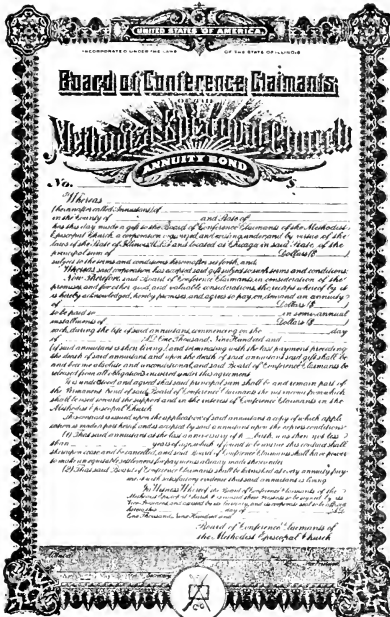 UNITED STATES OF AMERICA.
INCORPORATED UNDER THE LAWS OF THE STATE OF ILLINOIS
Board of Conference Claimants
Methodist Episcopal Church
ANNUITY BOND
No. $
Whereas
(hereinafter called Annuitant) of
in the County of and State of
has this day made a gift to the Board of Conference Claimants of the Methodist
Episcopal Church, a corporation organized and existing under and by virtue of the
laws of the State of Illinois, U.S.A. and located at Chicago in said State, of the
principal sum of Dollars ($ )
subject to the terms and conditions hereinafter set forth, and,
Whereas said corporation has accepted said gift subject to such terms and conditions,
Now Therefore, said Board of Conference Claimants, in consideration of the
premises, and for other good and valuable considerations, the receipt whereof by it
is hereby acknowledged, hereby promises and agrees to pay, on demand an annuity
of Dollars ($ )
to be paid to in semi-annual
installments of Dollars ($ )
each, during the life of said annuitant, commencing on the day
of A.D. One Thousand Nine Hundred and
if said annuitant is then living, and terminating with the last payment preceding
the death of said annuitant, and upon the death of said annuitant said gift shall be
and become absolute and unconditional, and said Board of Conference Claimants be
released from all obligations incurred under this agreement.
It is understood and agreed that said principal sum shall be and remain part of
the Permanent Fund of said Board of Conference Claimants, the net income from which
shall be used toward the support and in the interest of Conference Claimants in the
Methodist Episcopal Church.
This contract is issued upon the application of said annuitant, a copy of which application
is made a part hereof, and is accepted by said annuitant upon the express conditions
(1) That said annuitant at the last anniversary of birth, was then not less
than years of age, which if found to be untrue this contract shall
thereupon cease and be cancelled, and said Board of Conference Claimants shall have power
to make an equitable settlement for payments already made thereunder.
(2) That said Board of Conference Claimants shall be furnished at every annuity payment
with satisfactory evidence that said annuitant is living.
In Witness Whereof the Board of Conference Claimants of the
Methodist Episcopal Church has caused these presents to be signed by its
Vice President and attested by its Secretary, and its corporate seal to be affixed
hereto this day of A.D.
One Thousand Nine Hundred and
Board of Conference Claimants of
the Methodist Episcopal Church
By
Secretary
Vice President